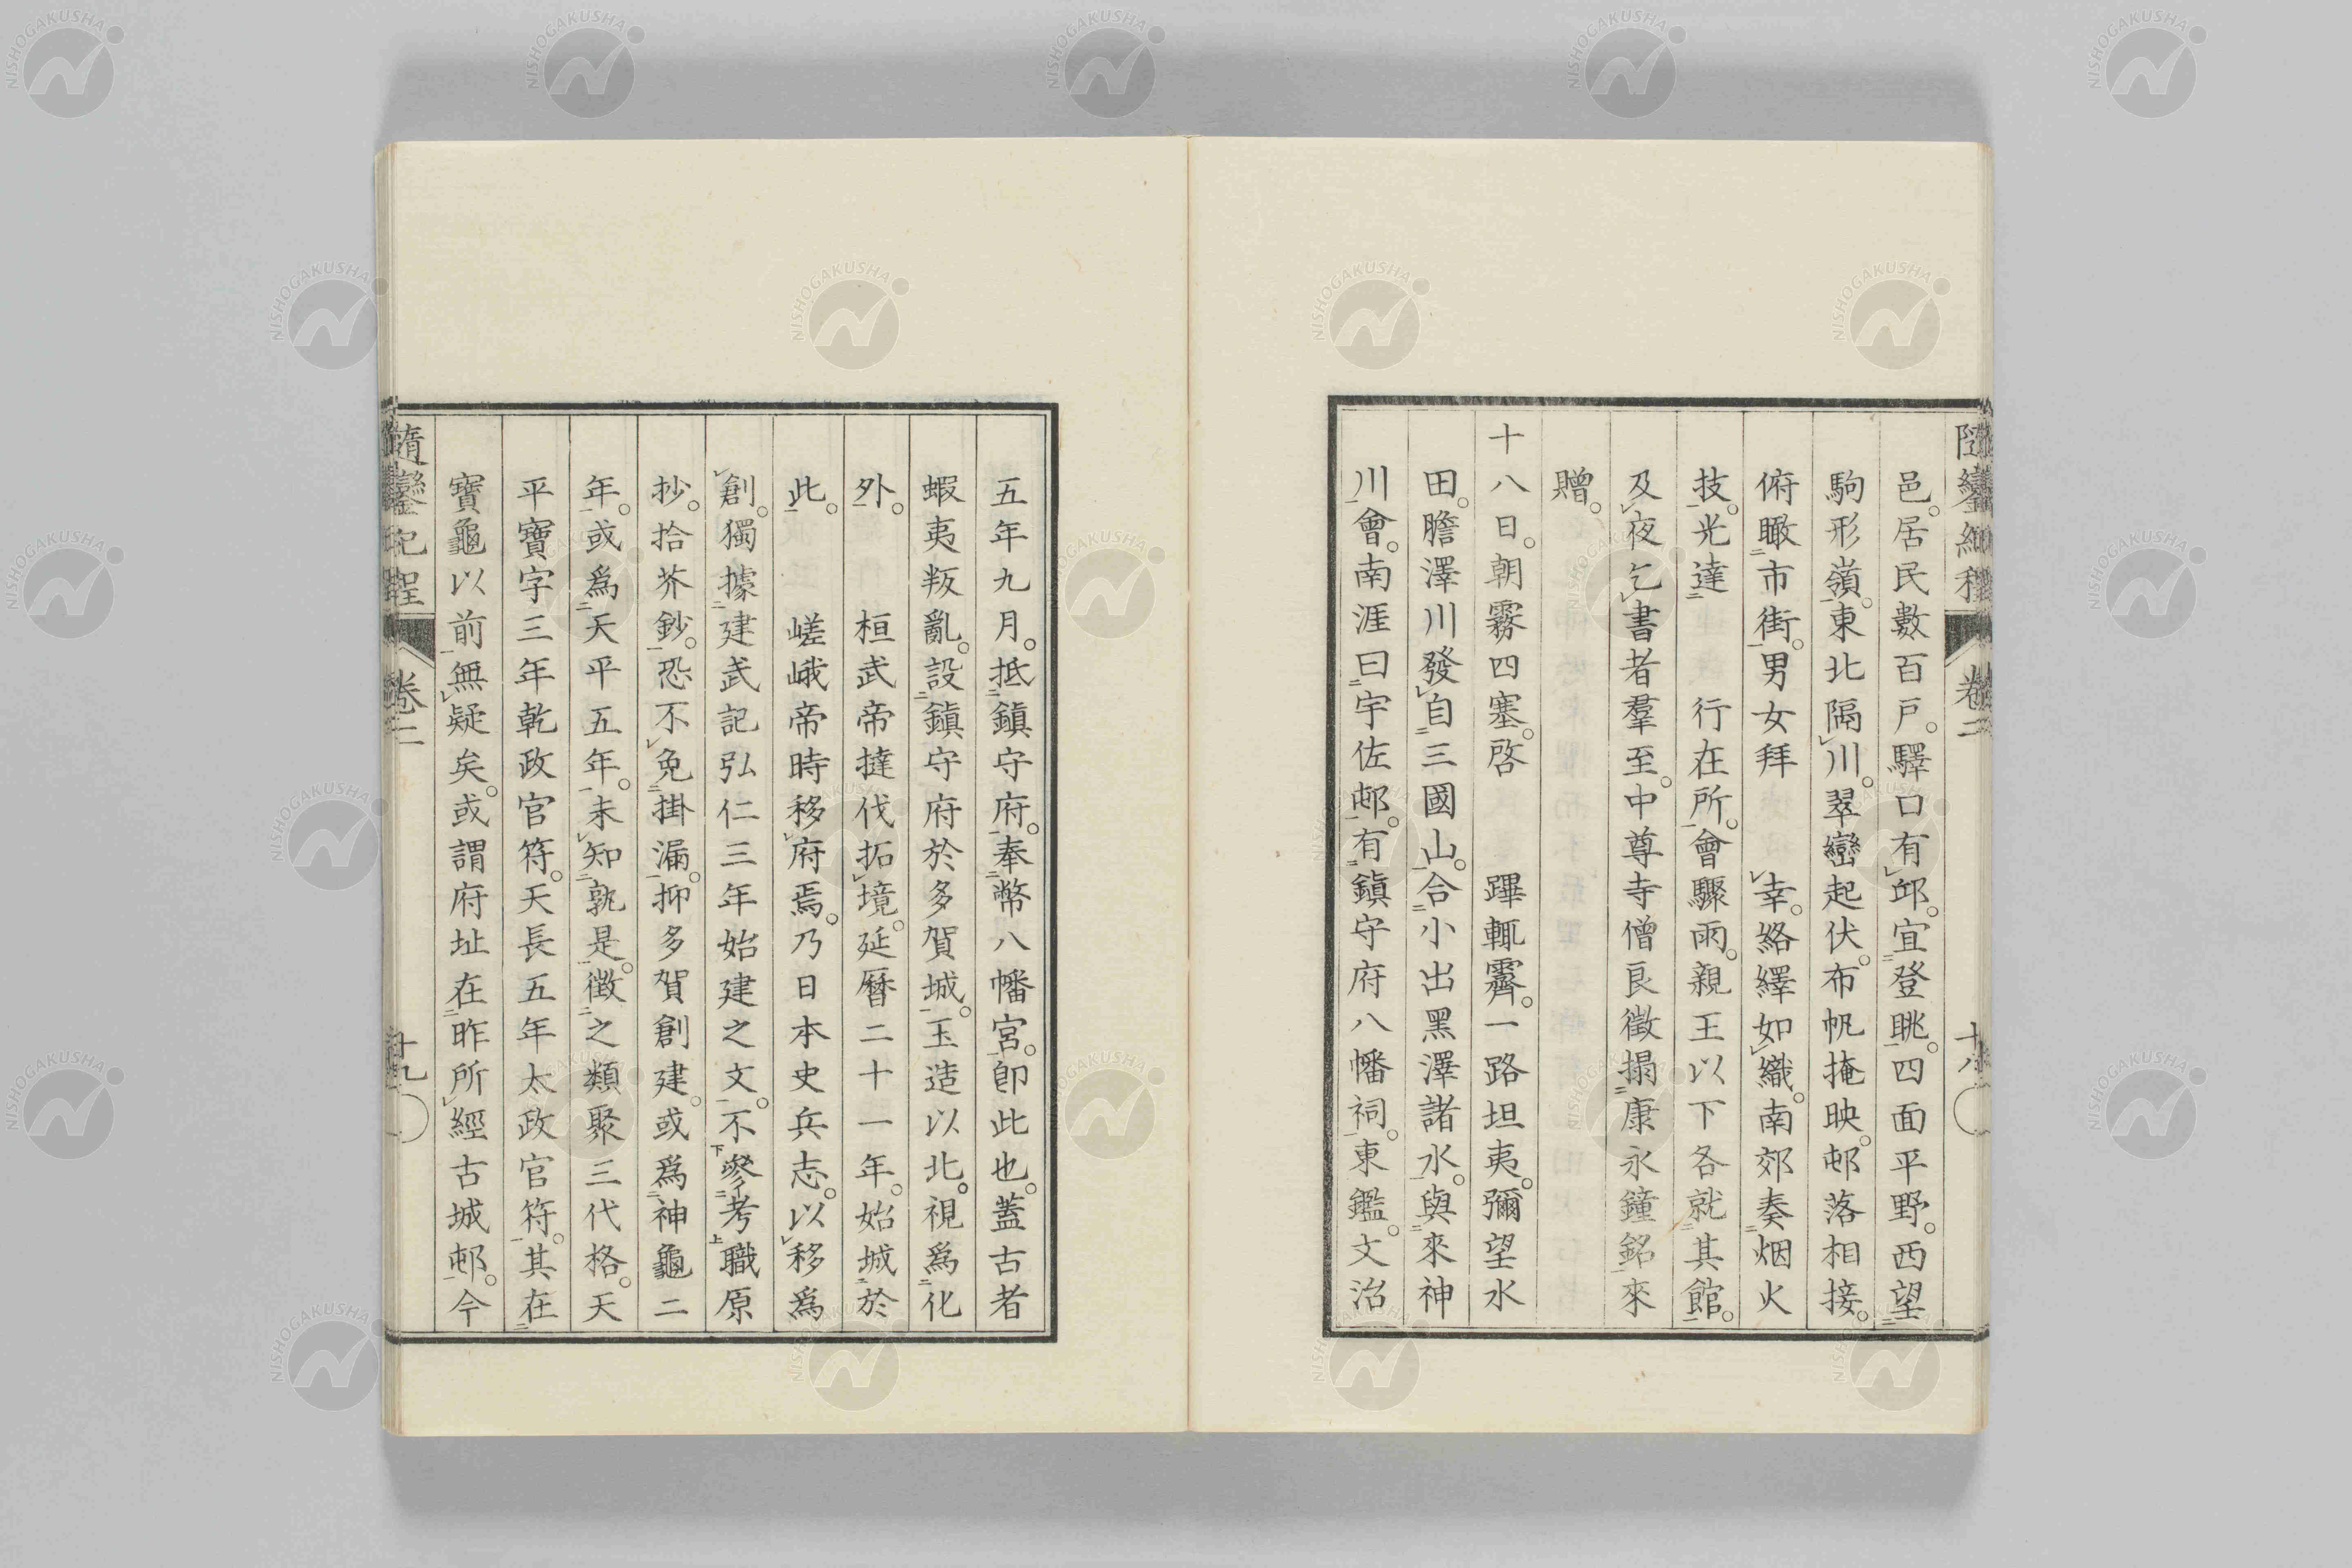 隨鑾紀程 卷二 十八
邑。居民數百戶。驛口有邱。宜登眺。四面平野。西望
駒形嶺。東北隔川。翠巒起伏。布帆掩映。邨落相接。
俯瞰市街。男女拜 幸。絡繹如織。南郊奏烟火
技。光達 行在所。會驟雨。親王以下各就其館。
及夜乞書者羣至。中尊寺僧良徵搨康永鐘銘來
贈。
十八日。朝霧四塞。啓 蹕輒霽。一路坦夷。彌望水
田。膽澤川發自三國山。合小出黑澤諸水。與來神
川會。南涯曰宇佐邨。有鎮守府八幡祠。東鑑。文治
五年九月。抵鎮守府。奉幣八幡宮。卽此也。蓋古者
蝦夷叛亂。設鎮守府於多賀城。玉造以北。視爲化
外。 桓武帝撻伐拓境。延曆二十一年。始城於
此。 嵯峨帝時移府焉。乃日本史兵志。以移爲
創。獨據建武記弘仁三年始建之文。不參考職原
抄拾芥鈔。恐不免掛漏。抑多賀創建。或爲神龜二
年。或爲天平五年。未知孰是。徵之類聚三代格。天
平寶字三年乾政官符。天長五年太政官符。其在
寶龜以前無疑矣。或謂府址在昨所經古城邨。今
隨鑾紀程 卷二 十九
NISHOGAKUSHA